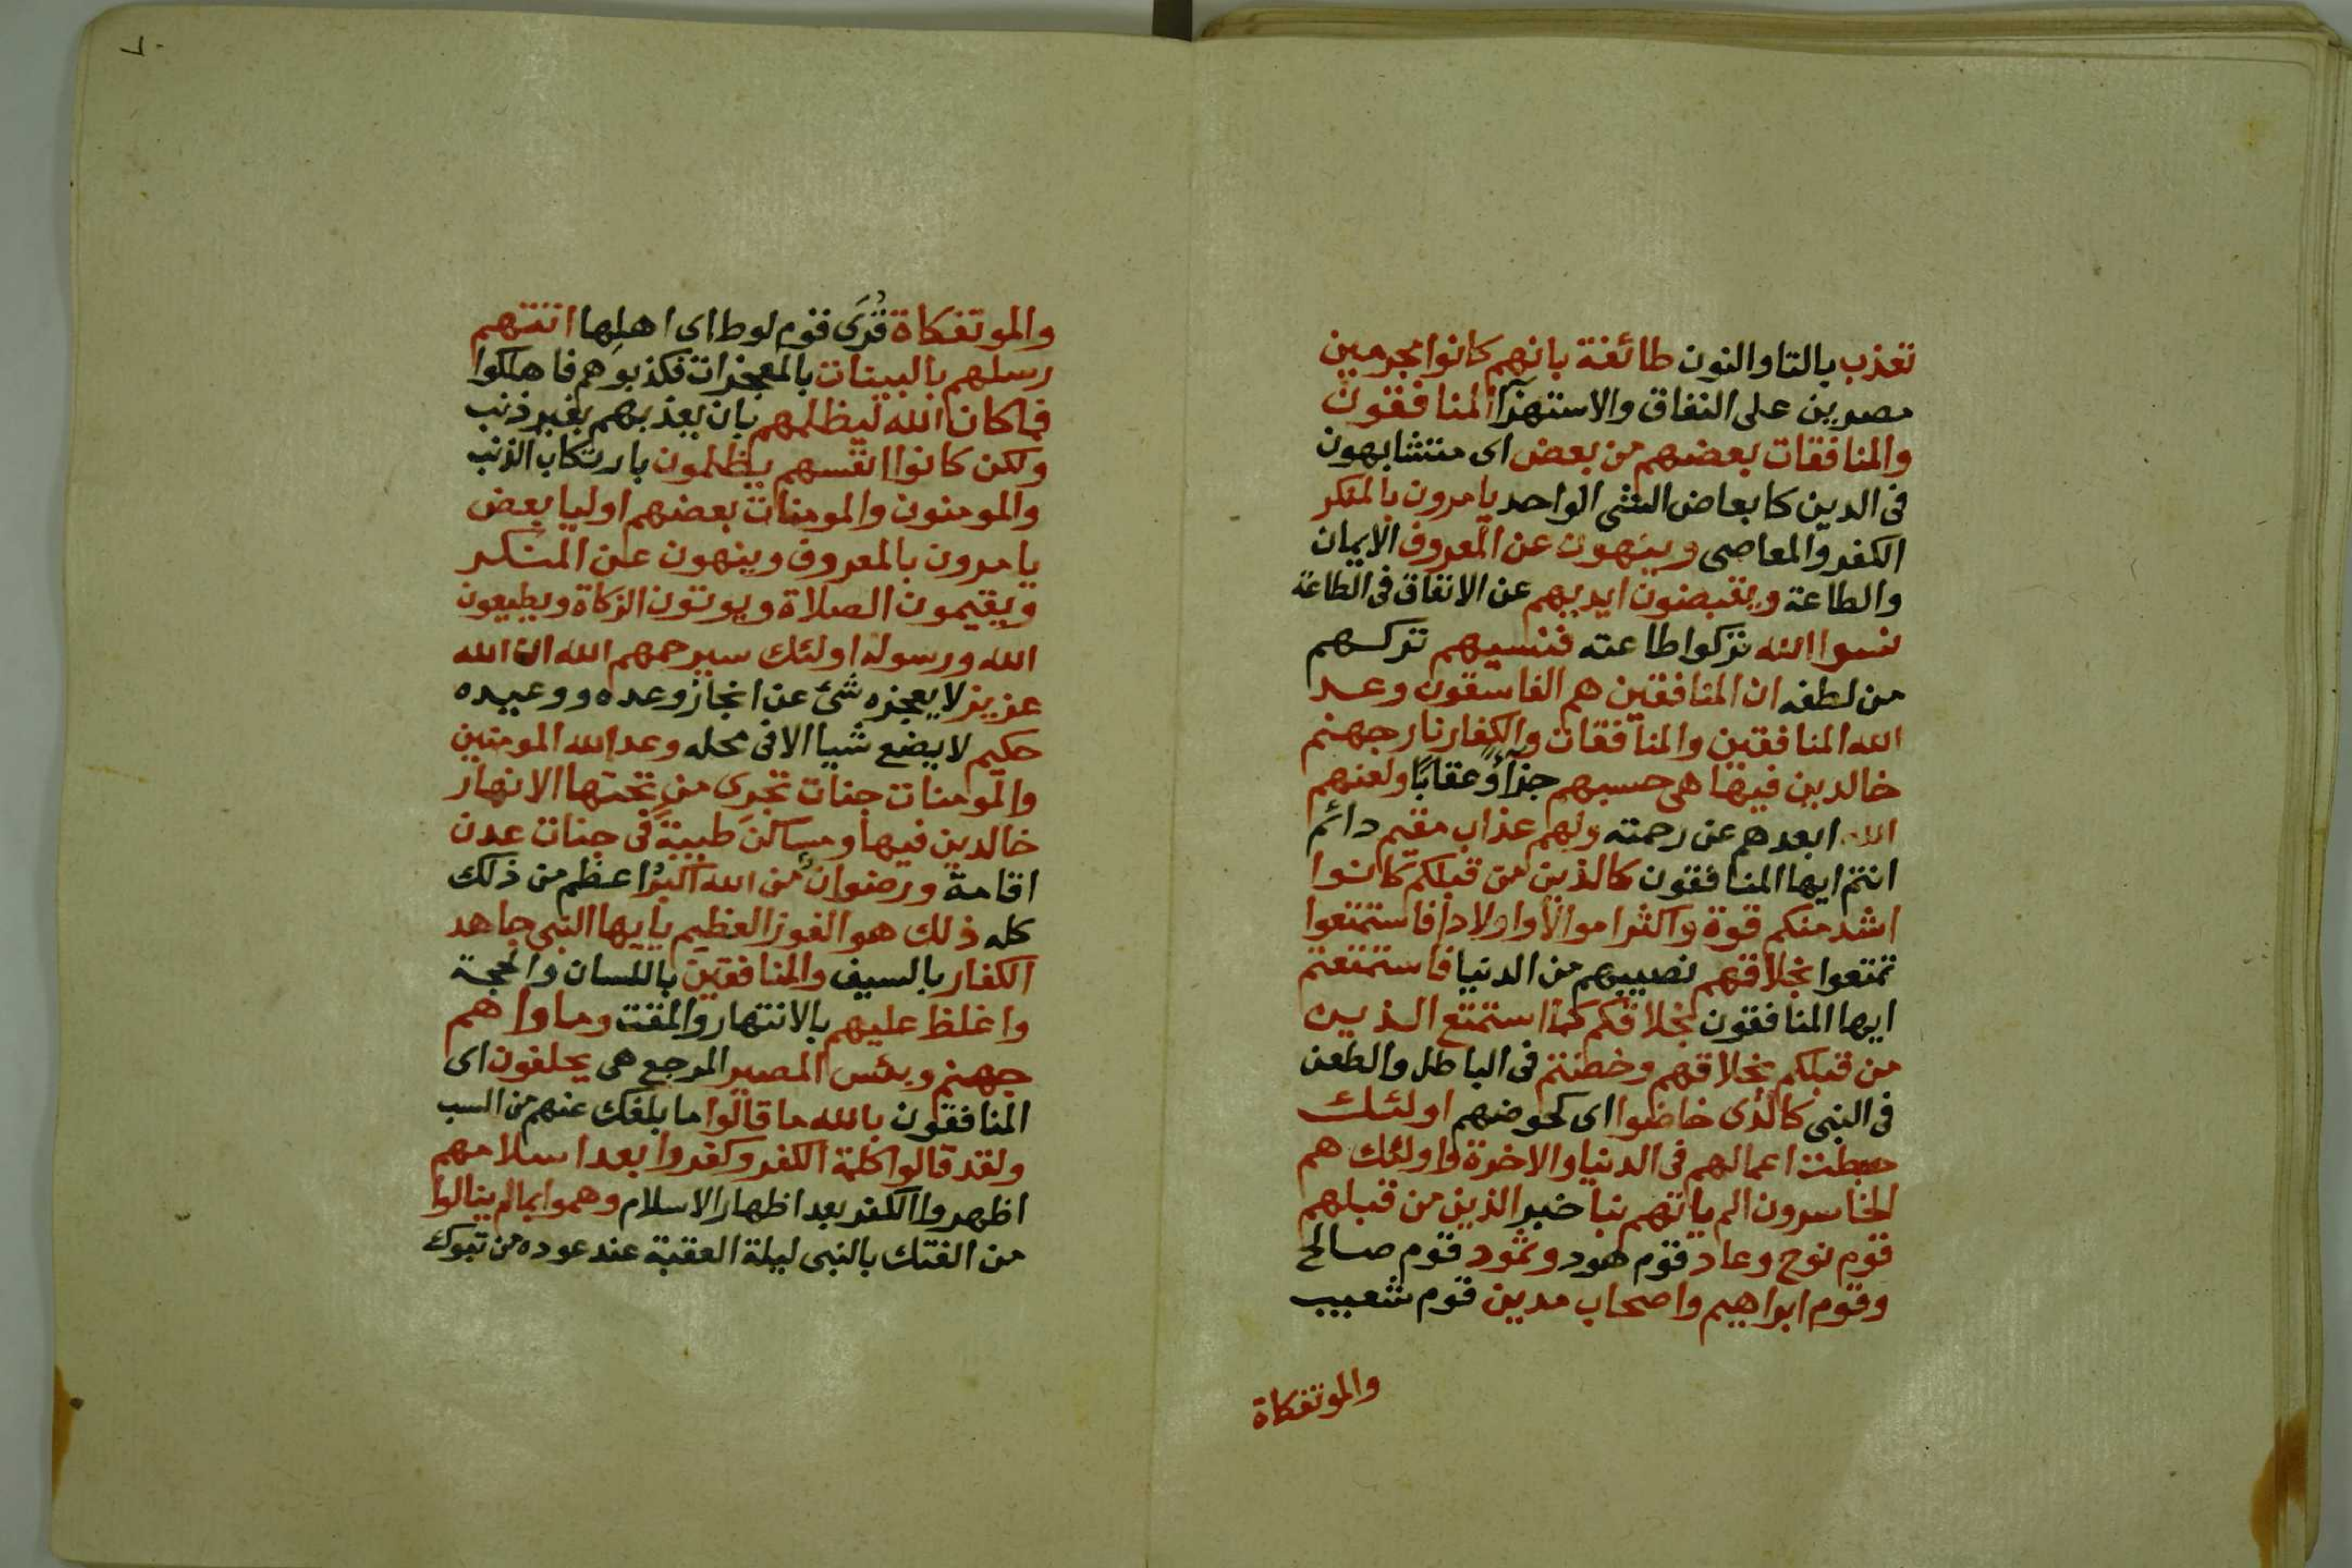 تعذب بالتا والنون طائفة بانهم كانوا مجرمين
مصرين على النفاق والاستهزآ المنافقون
والمنافقات بعضهم من بعض اى متشابهون
فى الدين كابعاض الشى الواحد يامرون بالمنكر
الكفر والمعاصى وينهون عن المعروف الايمان
والطاعة ويقبضون ايديهم عن الانفاق فى الطاعة
نسوا الله تركوا طاعته فنسيهم تركهم
من لطفه ان المنافقين هم الفاسقون وعد
الله المنافقين والمنافقات والكفار نار جهنم
خالدين فيها هى حسبهم جزآؤ وعقابًا ولعنهم
الله ابعدهم عن رحمته ولهم عذاب مقيم دائم
انتم ايها المنافقون كالذين من قبلكم كانوا
اشد منكم قوة واكثر اموالا واولادا فاستمتعوا
تمتعوا بخلاقهم نصيبهم من الدنيا فاستمتعتم
ايها المنافقون بخلاقكم كما استمتع الذين
من قبلكم بخلاقهم وخضتم فى الباطل والطعن
فى النبى كالذى خاضوا اى كخوضهم اولئك
حبطت اعمالهم فى الدنيا والاخرة واولئك هم
الخاسرون الم ياتهم نبأ خبر الذين من قبلهم
قوم نوح وعاد قوم هود وثمود قوم صالح
وقوم ابراهيم واصحاب مدين قوم شعيب
والموتفكاة
٧٠
والموتفكاة قُرَى قوم لوط اى اهلها اتتهم
رسلهم بالبينات بالمعجزات فكذبوهم فاهلكوا
فما كان الله ليظلمهم بان يعذبهم بغير ذنب
ولكن كانوا انفسهم يظلمون بارتكاب الذنب
والمومنون والمومنات بعضهم اوليا بعض
يامرون بالمعروف وينهون عن المنكر
ويقيمون الصلاة ويوتون الزكاة ويطيعون
الله ورسوله اولئك سيرحمهم الله ان الله
عزيز لا يعجزه شئ عن انجاز وعده ووعيده
حكيم لا يضع شيا الا فى محله وعد الله المومنين
والمومنات جنات تجرى من تحتها الانهار
خالدين فيها ومساكن طيبة فى جنات عدن
اقامة ورضوان من الله اكبر اعظم من ذلك
كله ذلك هو الفوز العظيم يايها النبى جاهد
الكفار بالسيف والمنافقين باللسان والحجة
واغلظ عليهم بالانتهار والمقت وماواهم
جهنم وبئس المصير المرجع هى يحلفون اى
المنافقون بالله ما قالوا ما بلغك عنهم من السب
ولقد قالوا كلمة الكفر وكفروا بعد اسلامهم
اظهروا الكفر بعد اظهار الاسلام وهموا بما لم ينالوا
من الفتك بالنبى ليلة العقبة عند عوده من تبوك